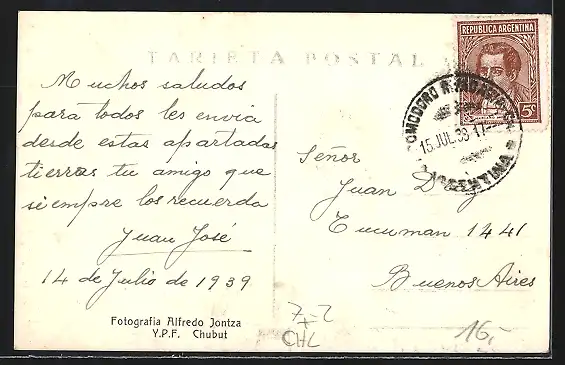 TARJETA POSTAL
REPUBLICA ARGENTINA
5c
COMODORO RIVADAVIA
15 JUL 39 17
ARGENTINA
Muchos saludos
para todos les envia
desde estas apartadas
tierras tu amigo que
siempre los recuerda
Juan José
14 de Julio de 1939
Señor
Juan
Tucuman 1441
Buenos Aires
Fotografia Alfredo Jontza
Y.P.F. Chubut
7-2
CHL
16,-